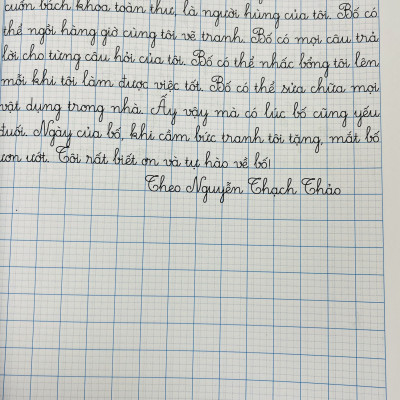 cuốn bách khoa toàn thư, là người hùng của tôi. Bố có
thể ngồi hàng giờ cùng tôi vẽ tranh. Bố có mọi câu trả
lời cho từng câu hỏi của tôi. Bố có thể nhấc bổng tôi lên
mỗi khi tôi làm được việc tốt. Bố có thể sửa chữa mọi
vật dụng trong nhà. Ấy vậy mà có lúc bố cũng yếu
đuối. Ngày của bố, khi cầm bức tranh tôi tặng, mắt bố
ươn ướt. Tôi rất biết ơn và tự hào về bố!
Theo Nguyễn Thạch Thảo